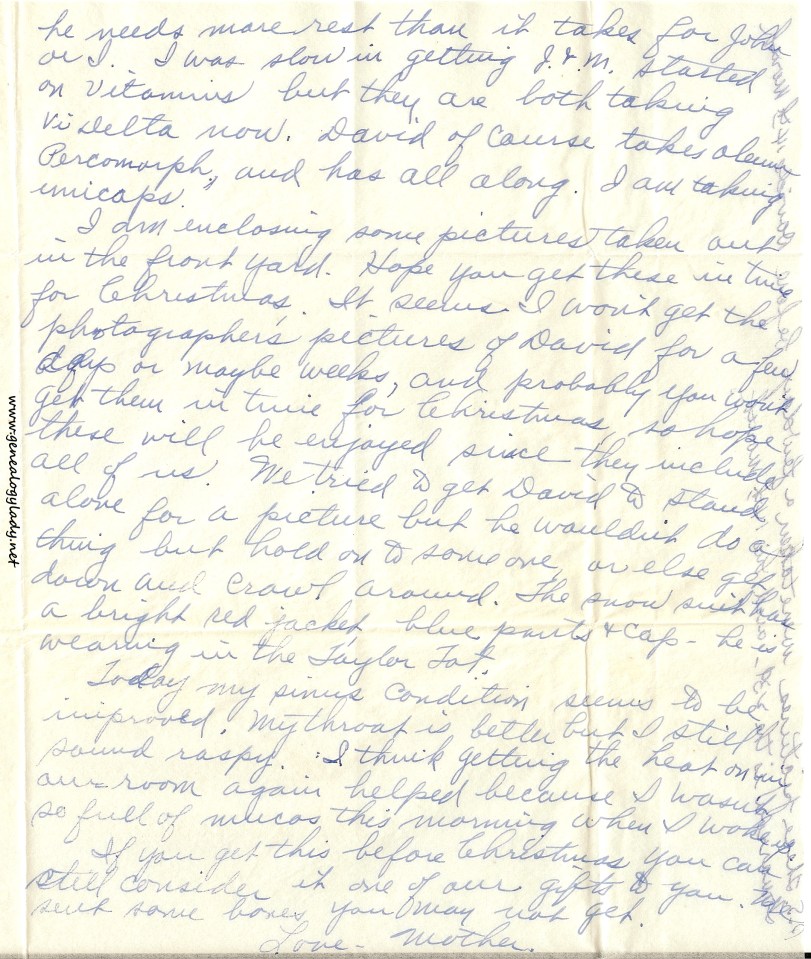 he needs more rest than it takes for John
or I. I was slow in getting J. & M. started
on vitamins but they are both taking
Vi Delta now. David of course takes oleum
Percomorph, and has all along. I am taking
unicaps."
I am enclosing some pictures taken out
in the front yard. Hope you get these in time
for Christmas. It seems I won't get the
photographer's pictures of David for a few
days or maybe weeks, and probably you won't
get them in time for Christmas, so hope
these will be enjoyed since they include
all of us. We tried to get David to stand
alone for a picture but he wouldn't do a
thing but hold on to someone, or else get
down and crawl around. The snow suit has
a bright red jacket, blue pants & cap - he is
wearing in the Taylor Tot.
Today my sinus condition seems to be
improved. My throat is better but I still
sound raspy. I think getting the heat on in
our room again helped because I wasn't
so full of mucos this morning when I woke up.
If you get this before Christmas you can
still consider it one of our gifts to you. We
sent some boxes you may not get.
Love - Mother.
www.genealogylady.net